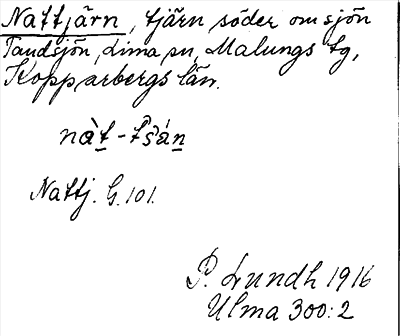 Nattjärn, tjärn söder om sjön
Tandsjön, Lima sn, Malungs tg,
Kopparbergs län.
nàt-tšán
Nattj. G. 101.
P. Lundh 1916
Ulma 300:2